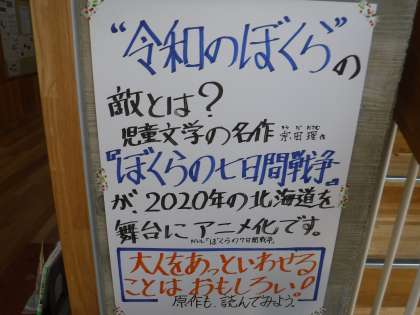 “令和のぼくら”の
敵とは?
児童文学の名作 宗田理作
『ぼくらの七日間戦争』
が、2020年の北海道を
舞台にアニメ化です。
大人をあっといわせる
ことはおもしろい!
原作も、読んでみよう。